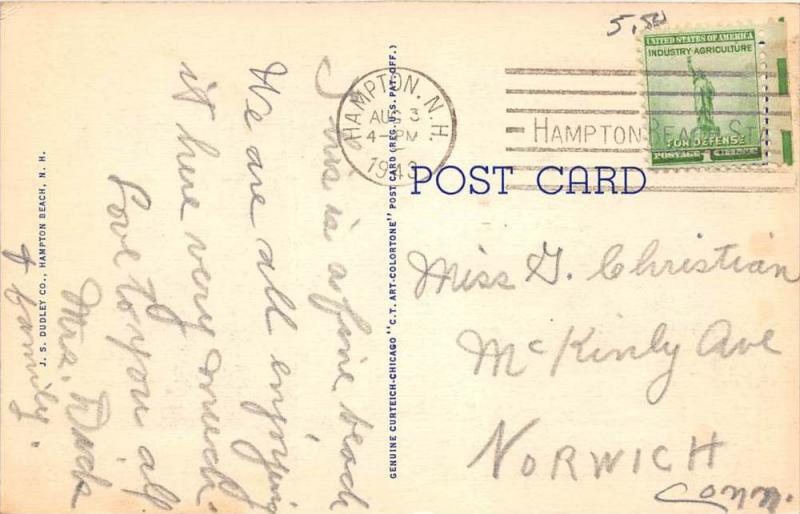 5.50
UNITED STATES OF AMERICA
INDUSTRY AGRICULTURE
FOR DEFENSE
POSTAGE 1 CENT
HAMPTON, N.H.
AUG 3
4-PM
1943
HAMPTON BEACH STA
POST CARD
This is a fine beach
We are all enjoying
it here very much.
Love to you all
Mrs.
& family.
Miss G. Christian
McKinly Ave
NORWICH
Conn.
GENUINE CURTEICH-CHICAGO "C.T. ART-COLORTONE" POST CARD (REG. U.S. PAT. OFF.)
J. S. DUDLEY CO., HAMPTON BEACH, N. H.